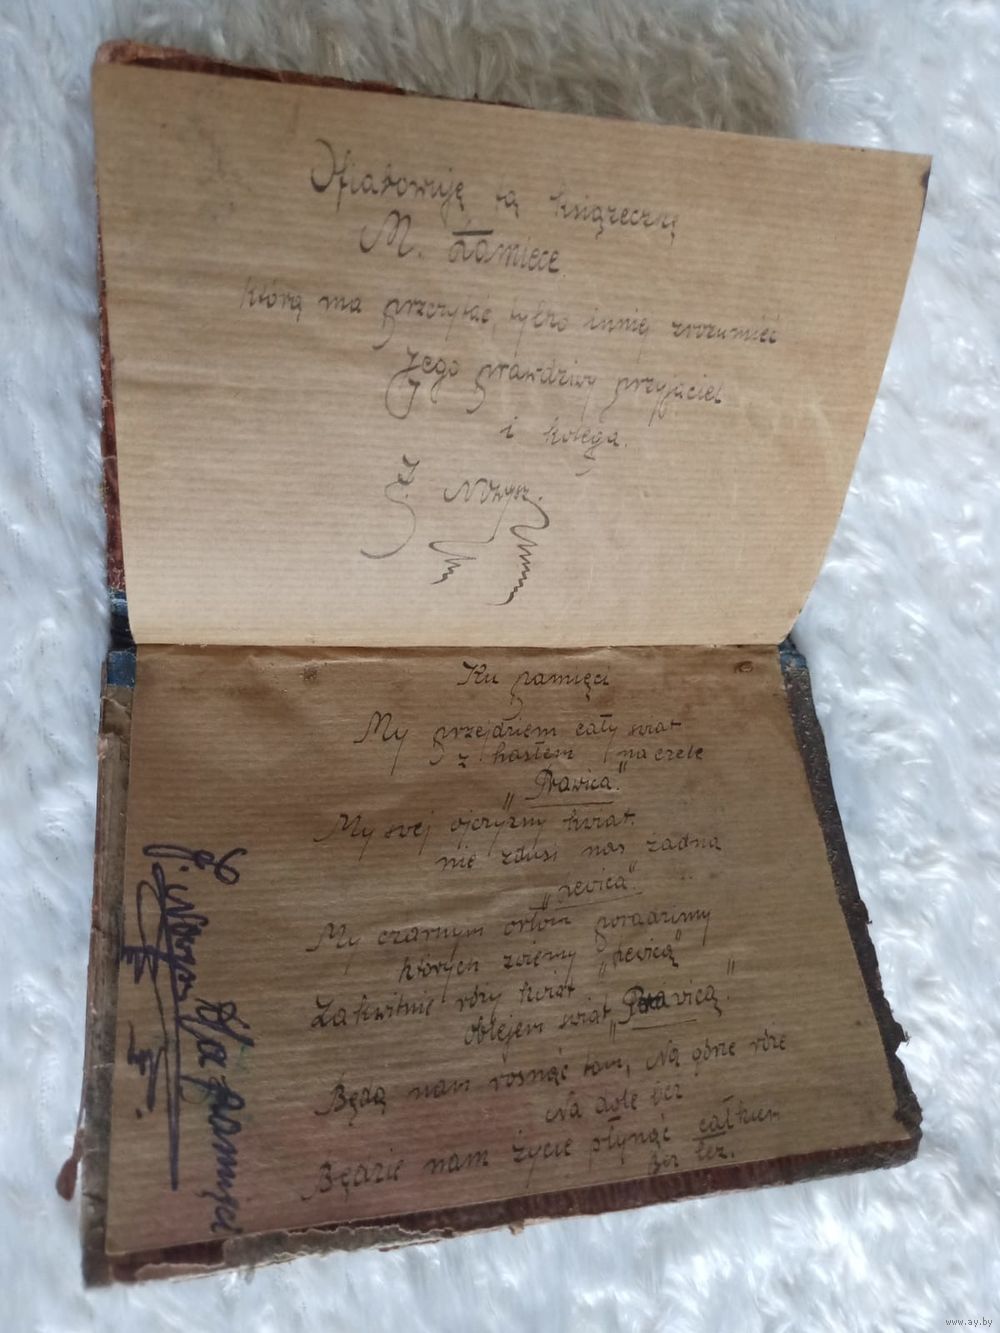 Ofiarowuję tą książeczkę
M. Łamiece.
którą ma przczytać, tylko inniej zrozumieć
Jego prawdziwy przyjaciel
i kolega.
J. Nowysz.
Ku pamięci
My przejdziem cały swiat
z hasłem na czele
„Prawica".
My swej ojczyzny kwiat.
nie zdusi nas żadna
„Lewica".
My czarnym orłom poradzimy
których zwiemy „Lewicą"
Zakwitnie róży kwiat
oblejem swiat „Prawicą".
Będą nam rosnąć tam, Na górze róże
Na dole bez
Będzie nam życie płynąć całkiem
Bez łez.
Na pamięci
www.ay.by